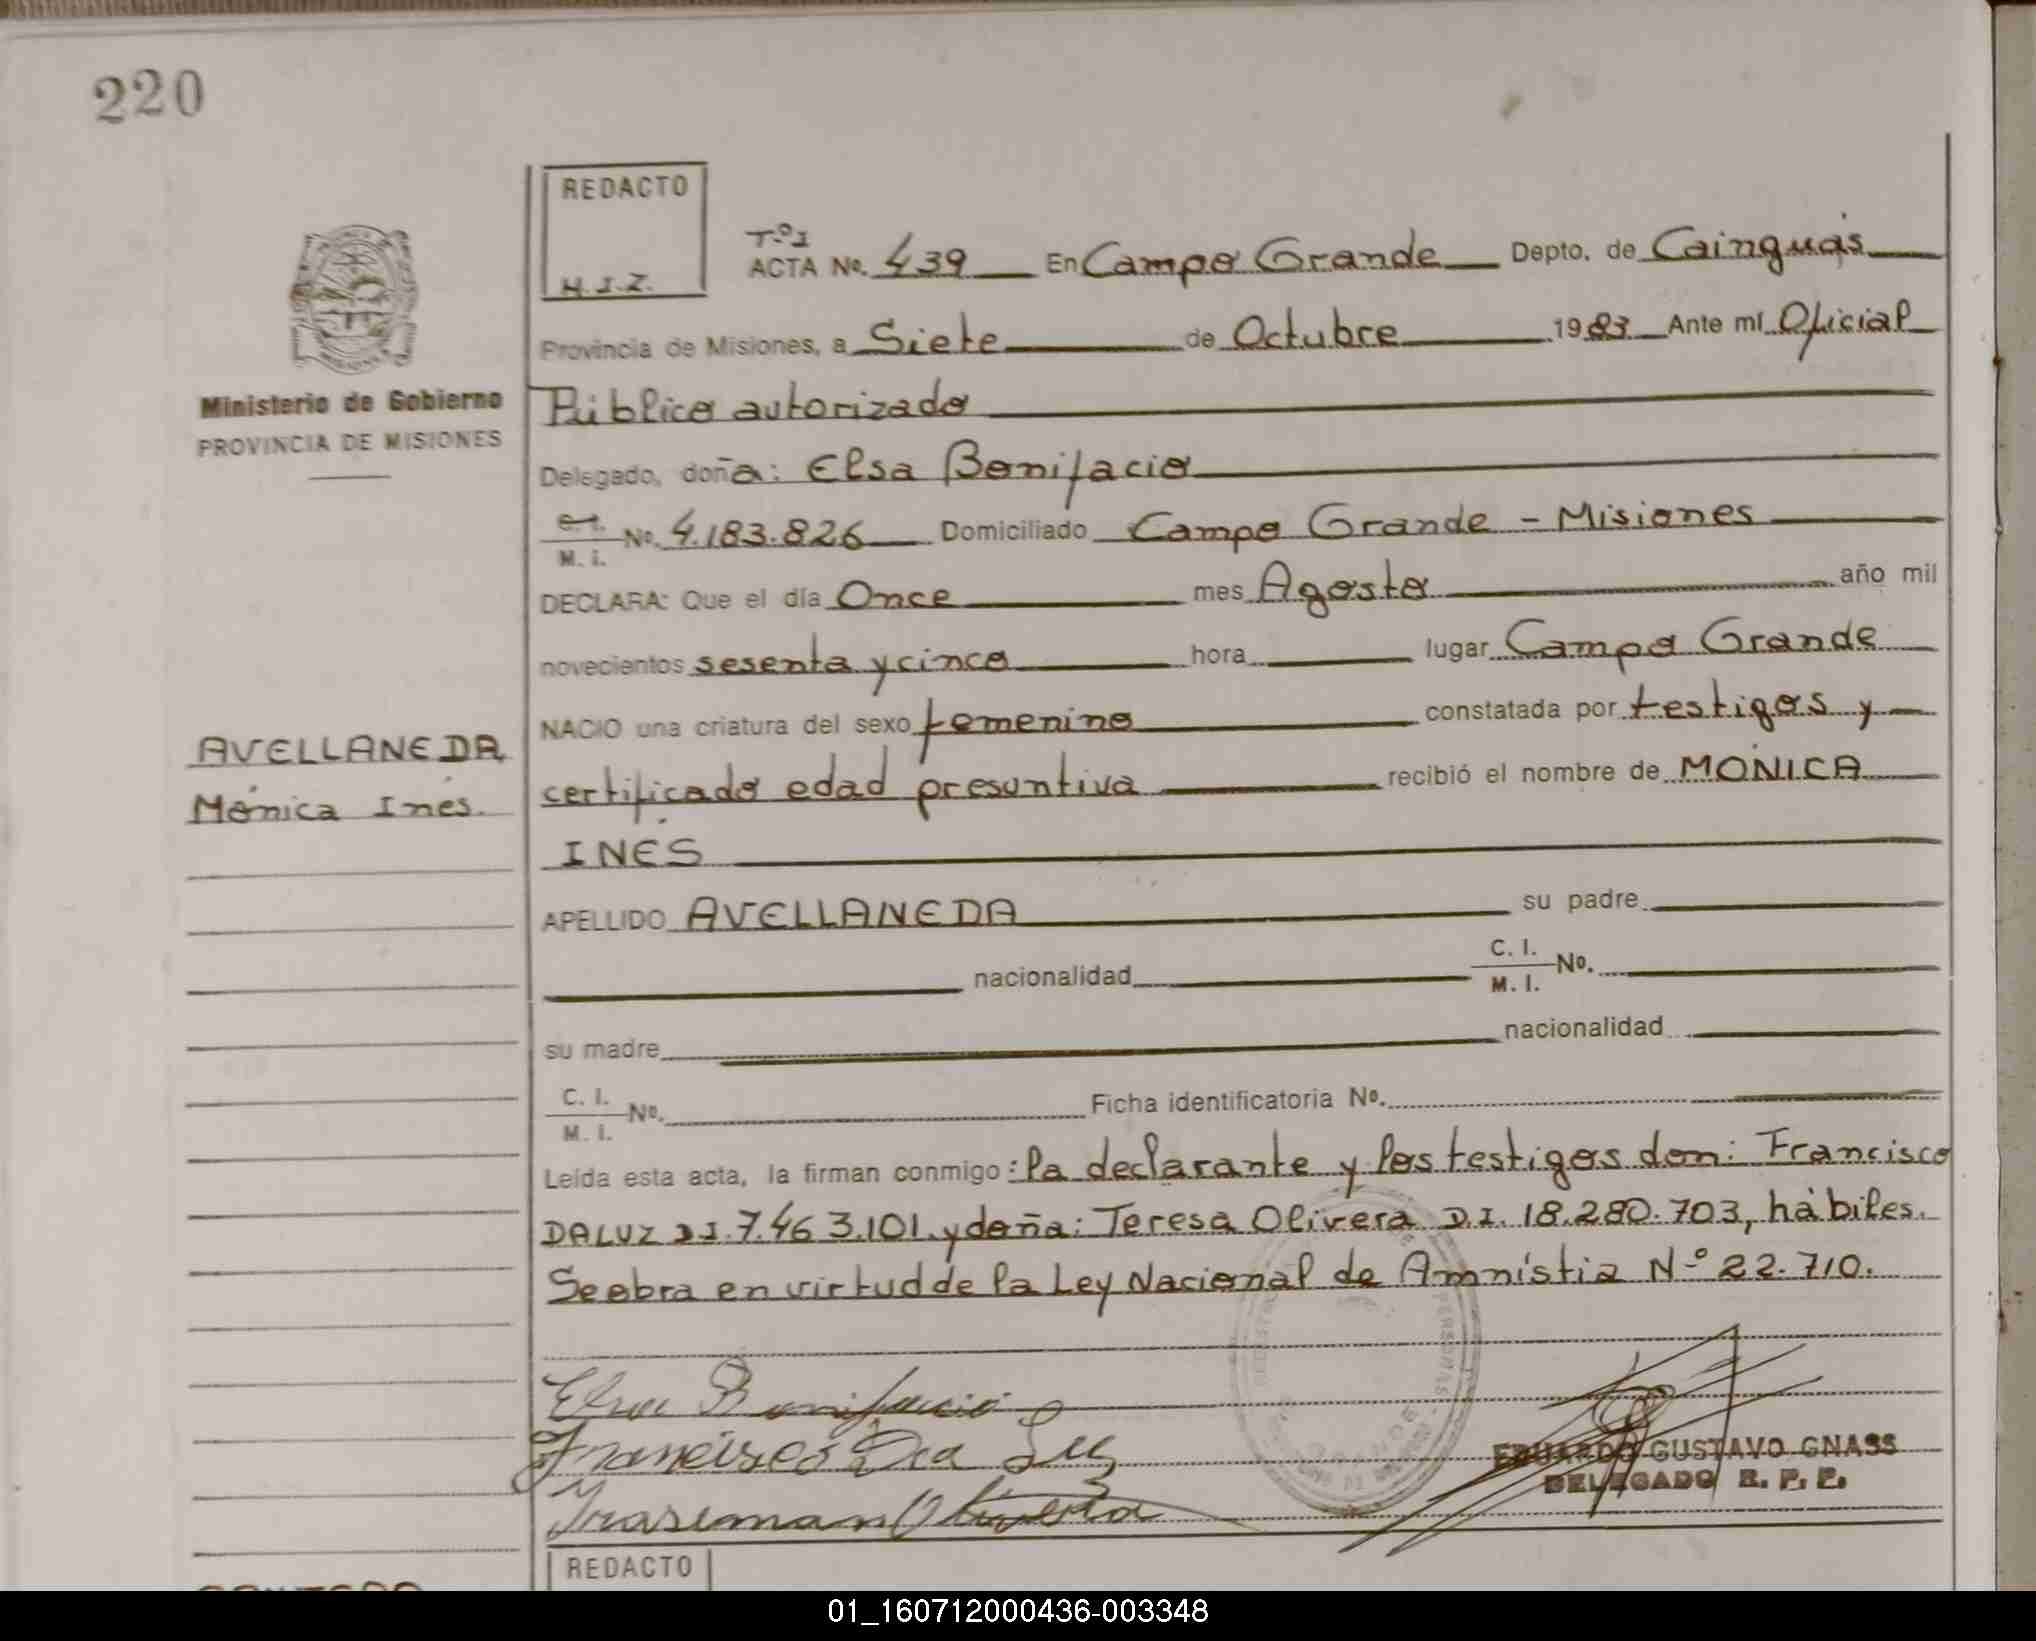 220
REDACTO
H.J.Z.
Tº1
ACTA No. 439 En Campo Grande Depto. de Cainguás
Provincia de Misiones, a Siete de Octubre 1983 Ante mí Oficial
Público autorizado
Ministerio de Gobierno
PROVINCIA DE MISIONES
Delegado, doña: Elsa Bonifacio
C. I.
M. I. No. 4.183.826 Domiciliado Campo Grande - Misiones
DECLARA: Que el día Once mes Agosto año mil
novecientos sesenta y cinco hora lugar Campo Grande
NACIO una criatura del sexo femenino constatada por testigos y
AVELLANEDA
Mónica Inés.
certificado edad presuntiva recibió el nombre de MÓNICA
INÉS
APELLIDO AVELLANEDA su padre
nacionalidad C. I.
M. I. No.
su madre nacionalidad
C. I.
M. I. No. Ficha identificatoria No.
Leída esta acta, la firman conmigo: la declarante y los testigos don: Francisco
DALUZ D.I. 7.463.101 y doña: Teresa Olivera D.I. 18.280.703, hábiles.
Se obra en virtud de la Ley Nacional de Amnistia Nº 22.710.
Elsa Bonifacio
Francisco Da Luz
Olivera
EDUARDO GUSTAVO GNASS
DELEGADO R. P. P.
REDACTO
01_160712000436-003348